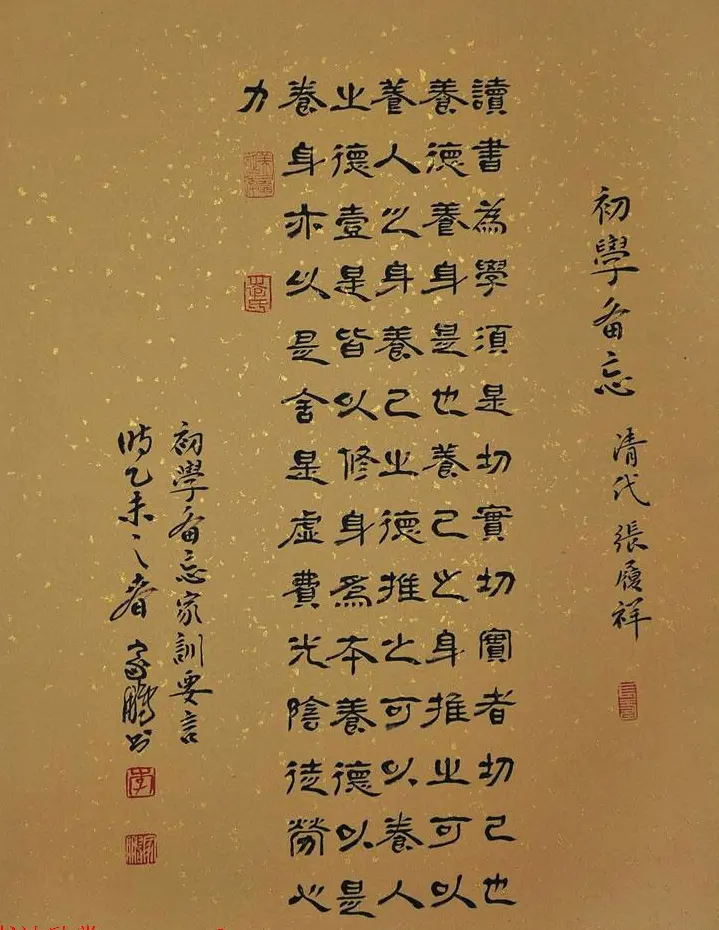 初學备忘 清代 張履祥
讀書為學須是切實切實者切己也
養德養身是也養己之身推之可以
養人之身養己之德推之可以養人
之德壹是皆以修身為本養德以是
養身亦以是舍是虛費光陰徒勞心
力
初學备忘家訓要言
時乙未之春家鵬书